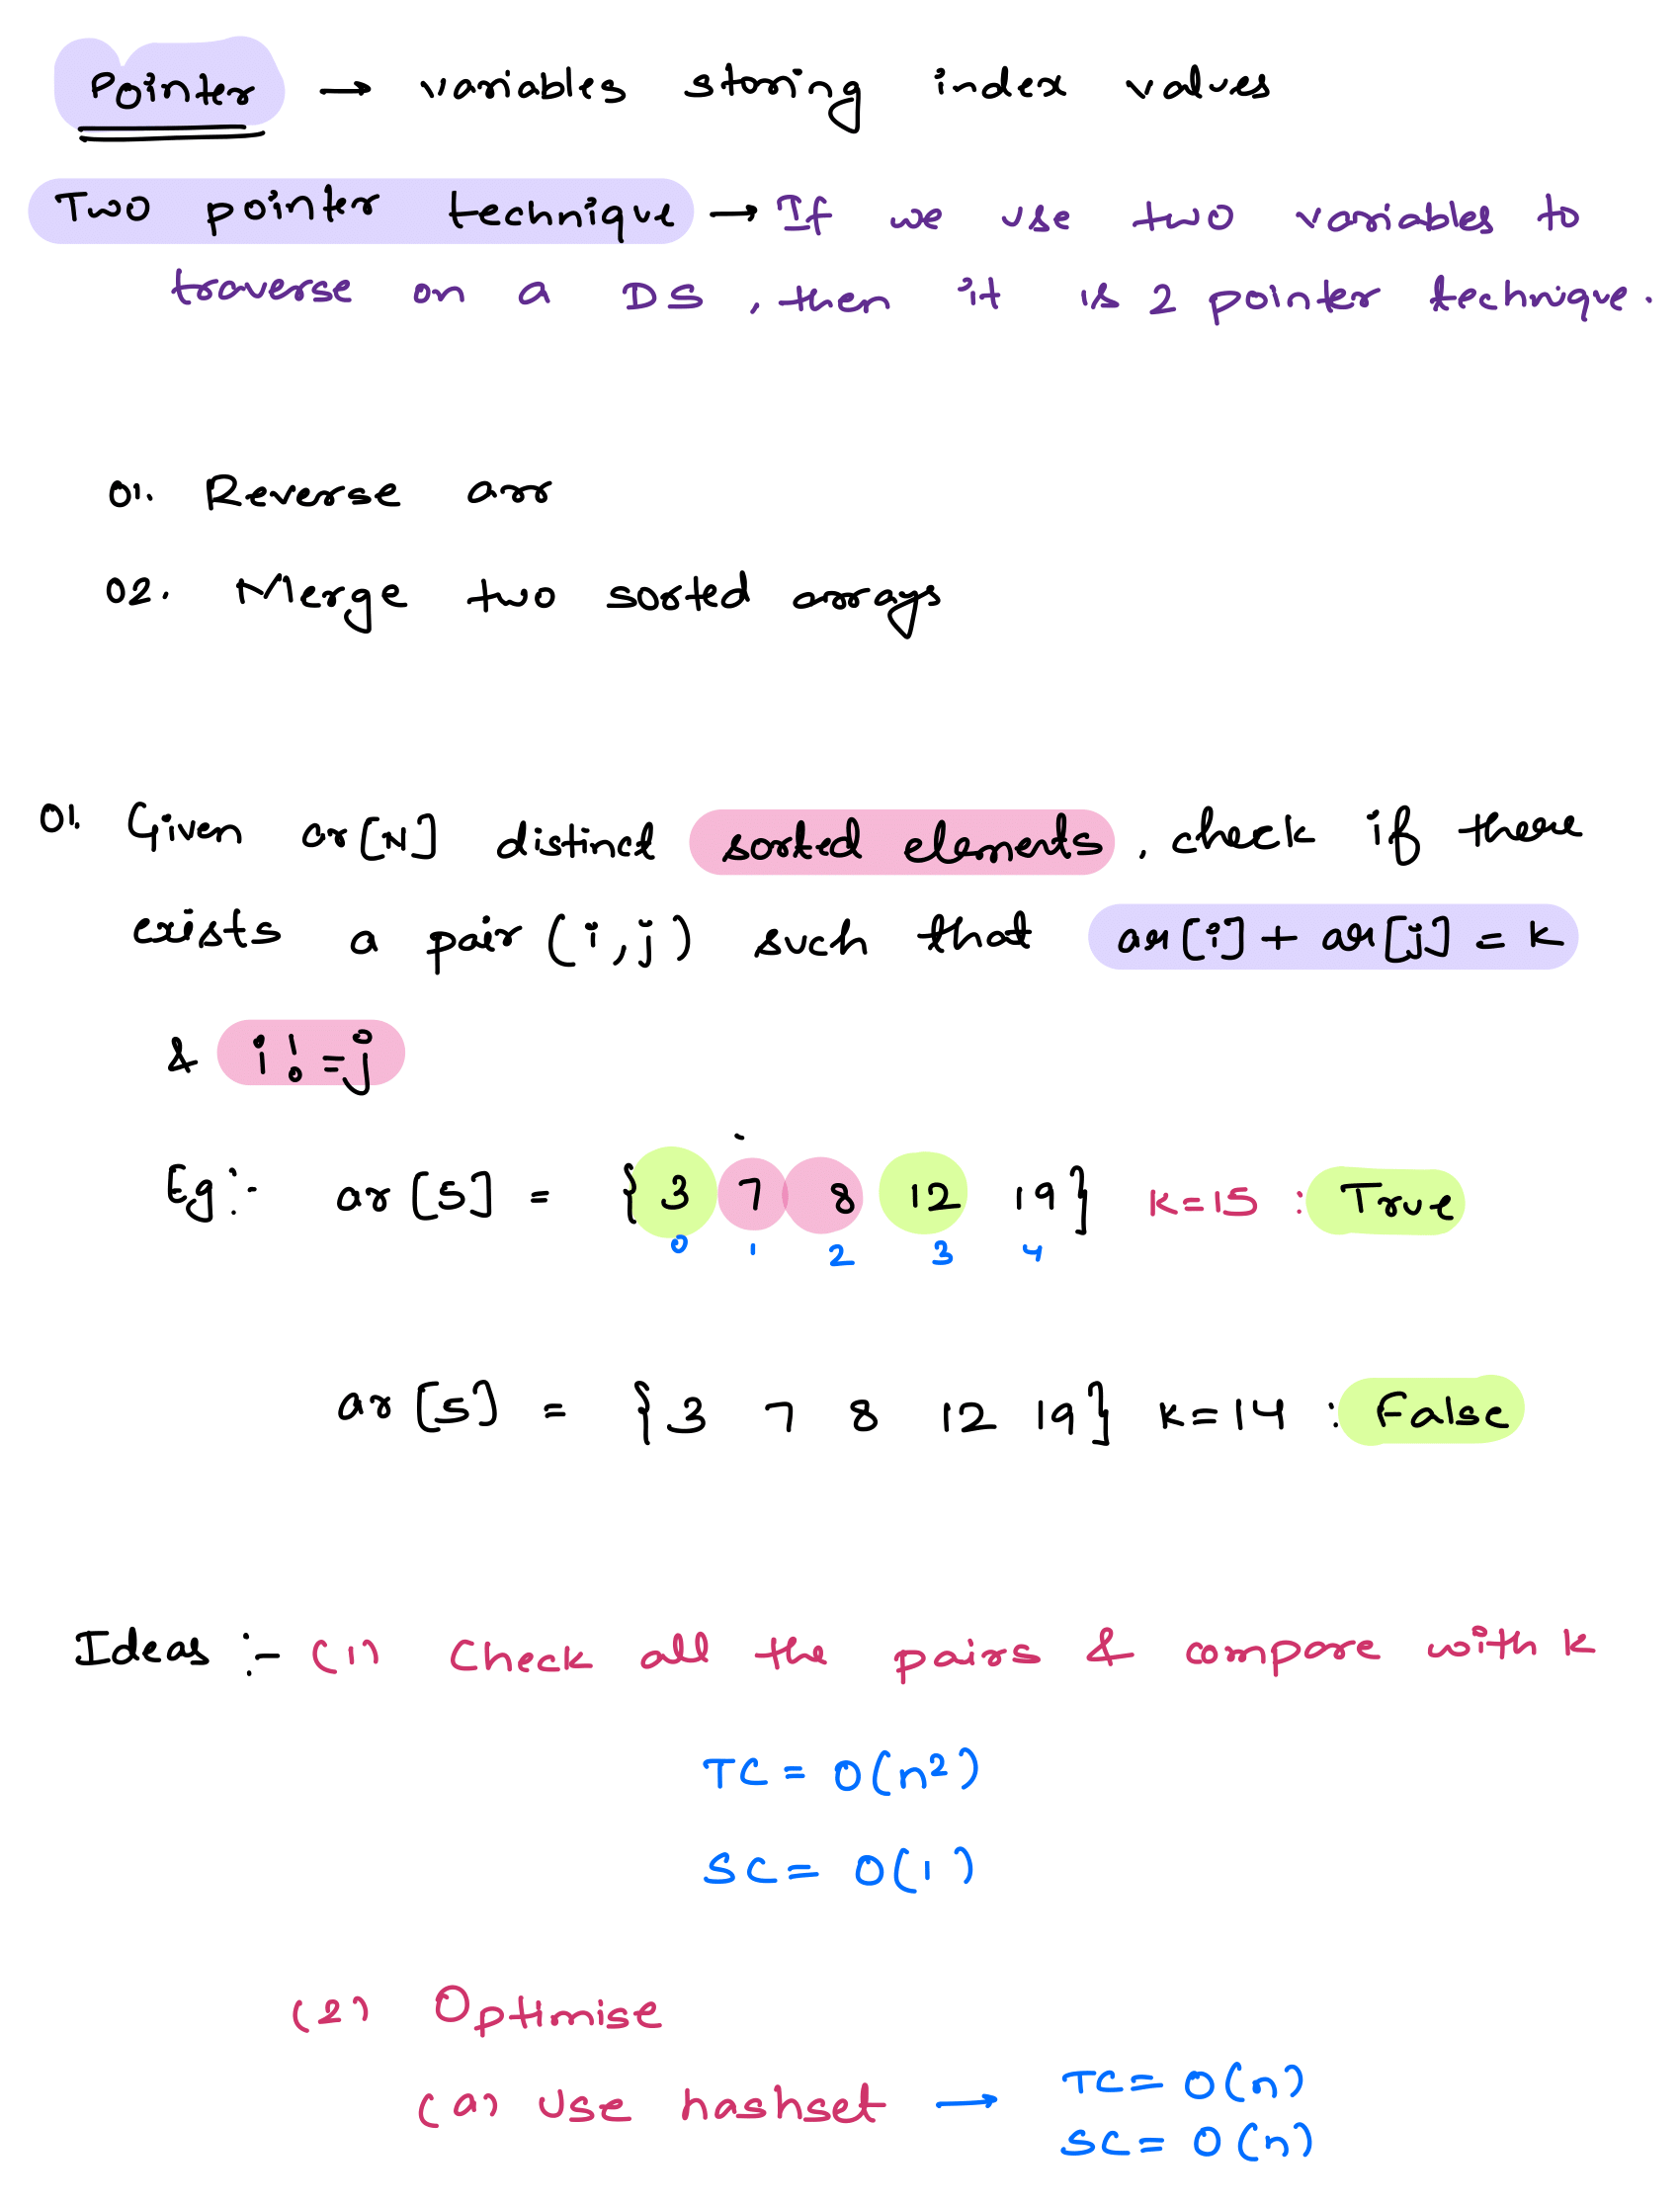 Pointer → variables storing index values
Two pointer technique → If we use two variables to
traverse on a DS, then it is 2 pointer technique.
01. Reverse arr
02. Merge two sorted arrays
01. Given ar[N] distinct sorted elements, check if there
exists a pair (i,j) such that ar[i] + ar[j] = k
& i != j
Eg:- ar[5] = {3 7 8 12 19} k=15 : True
0 1 2 3 4
ar[5] = {3 7 8 12 19} k=14 : False
Ideas :- (1) Check all the pairs & compare with k
TC = O(n²)
SC = O(1)
(2) Optimise
(a) Use hashset → TC = O(n)
SC = O(n)